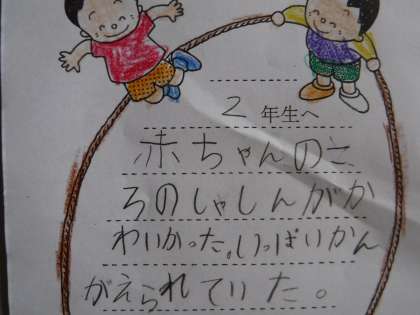 2年生へ
赤ちゃんのこ
ろのしゃしんがか
わいかった。いっぱいかん
がえられていた。